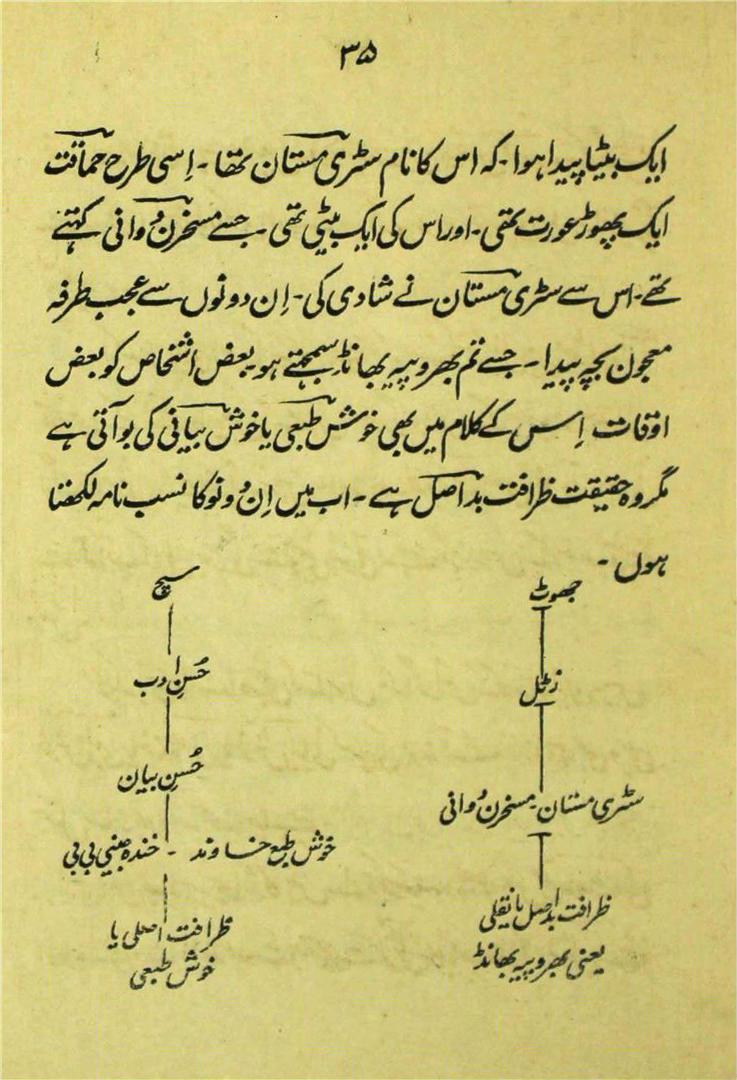 ۳۵
ایک بیٹا پیدا ہوا۔ کہ اس کا نام سٹری مستان تھا۔ اِسی طرح حماقت
ایک پھوہڑ عورت تھی۔ اور اس کی ایک بیٹی تھی۔ جسے مسخرن دُوانی کہتے
تھے۔ اس سے سٹری مستان نے شادی کی۔ اِن دونوں سے عجب طرفہ
معجون بچہ پیدا۔ جسے تم بھروپیہ بھانڈ سمجھتے ہو۔ بعض اشخاص کو بعض
اوقات اِس کے کلام میں بھی خوش طبعی یا خوش بیانی کی بو آتی ہے
مگر وہ حقیقت ظرافت بد اصل ہے۔ اب میں اِن دونو کا نسب نامہ لکھتا
ہوں۔
جھوٹ
زٹل
سٹری مستان۔ مسخرن دُوانی
ظرافت بد اصل یا نقلی
یعنی بھروپیہ بھانڈ
سچ
حُسنِ ادب
حُسنِ بیان
خوش طبع خاوند ۔ خندہ جبینی بی بی
ظرافت اصلی یا
خوش طبعی